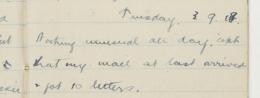 Tuesday. 3.9.18.
Nothing unusual all day, exept
that my mail at last arrived
& got 10 letters.